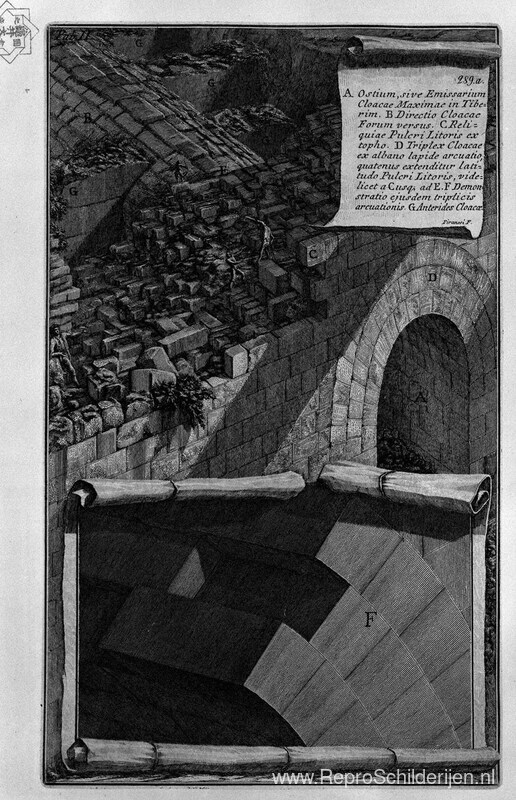 Tab. II
289.a.
A. Ostium, sive Emissarium
Cloacae Maximae in Tibe=
rim. B Directio Cloacae
Forum versus. C. Reli=
quiae Pulcri Litoris ex
topho. D Triplex Cloacae
ex albano lapide arcuatio,
quatenus extenditur lati=
tudo Pulcri Litoris, vide=
licet a C usq. ad E. F Demon
stratio ejusdem triplicis
arcuationis G Anterides Cloacae
Piranesi F.
G
G
B
G
C
D
A
F
www.ReproSchilderijen.nl